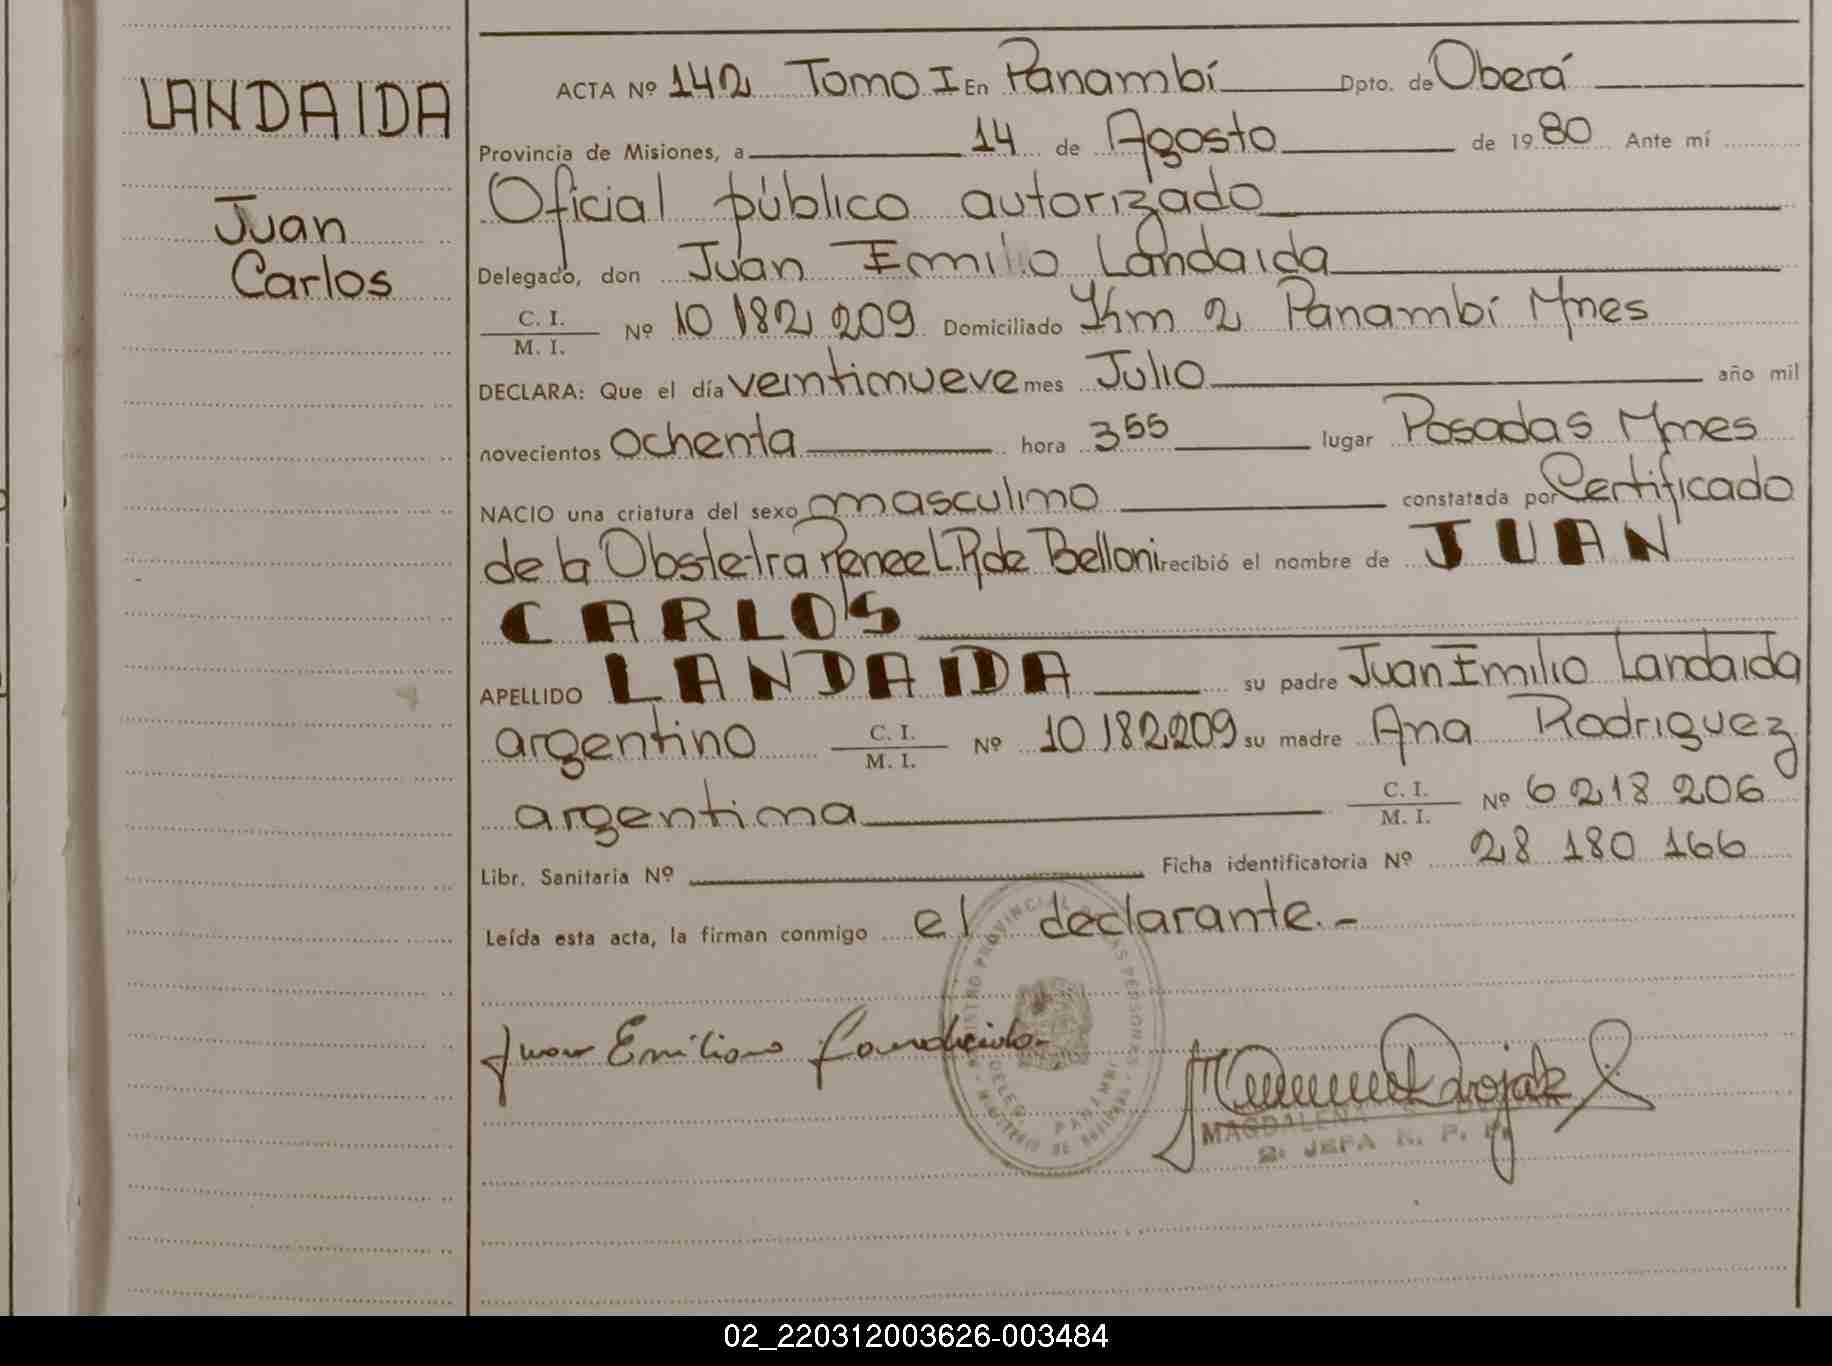 LANDAIDA
Juan
Carlos
ACTA Nº 142 Tomo I En Panambí Dpto. de Oberá
Provincia de Misiones, a 14 de Agosto de 1980 Ante mí
Oficial público autorizado
Delegado, don Juan Emilio Landaida
C. I.
M. I. Nº 10 182 209 Domiciliado Km 2 Panambí Mnes
DECLARA: Que el día veintinueve mes Julio año mil
novecientos ochenta hora 3 55 lugar Posadas Mnes
NACIO una criatura del sexo masculino constatada por Certificado
de la Obstetra Renee L. P. de Belloni recibió el nombre de JUAN
CARLOS
APELLIDO LANDAIDA su padre Juan Emilio Landaida
argentino C. I.
M. I. Nº 10 182209 su madre Ana Rodriguez
argentina C. I.
M. I. Nº 6 218 206
Libr. Sanitaria Nº Ficha identificatoria Nº 28 180 166
Leída esta acta, la firman conmigo el declarante.-
Juan Emiliano Landaida
PANAMBI
MAGDALENA
2: JEFA R. P.
02_220312003626-003484